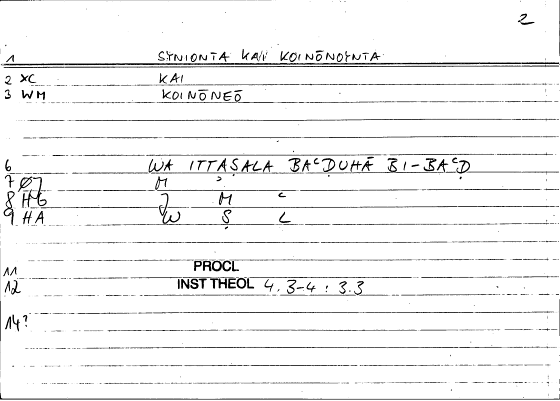 2
1 SYNIONTA KAI KOINŌNOYNTA
2 XC KAI
3 WM KOINŌNEŌ
6 WA ITTAṢALA BAʿḌUHĀ BI-BAʿḌ
7 ØJ M ʾ
8 HG J M ʿ
9 HA W Ṣ L
11 PROCL
12 INST THEOL 4.3-4 : 3.3
14?